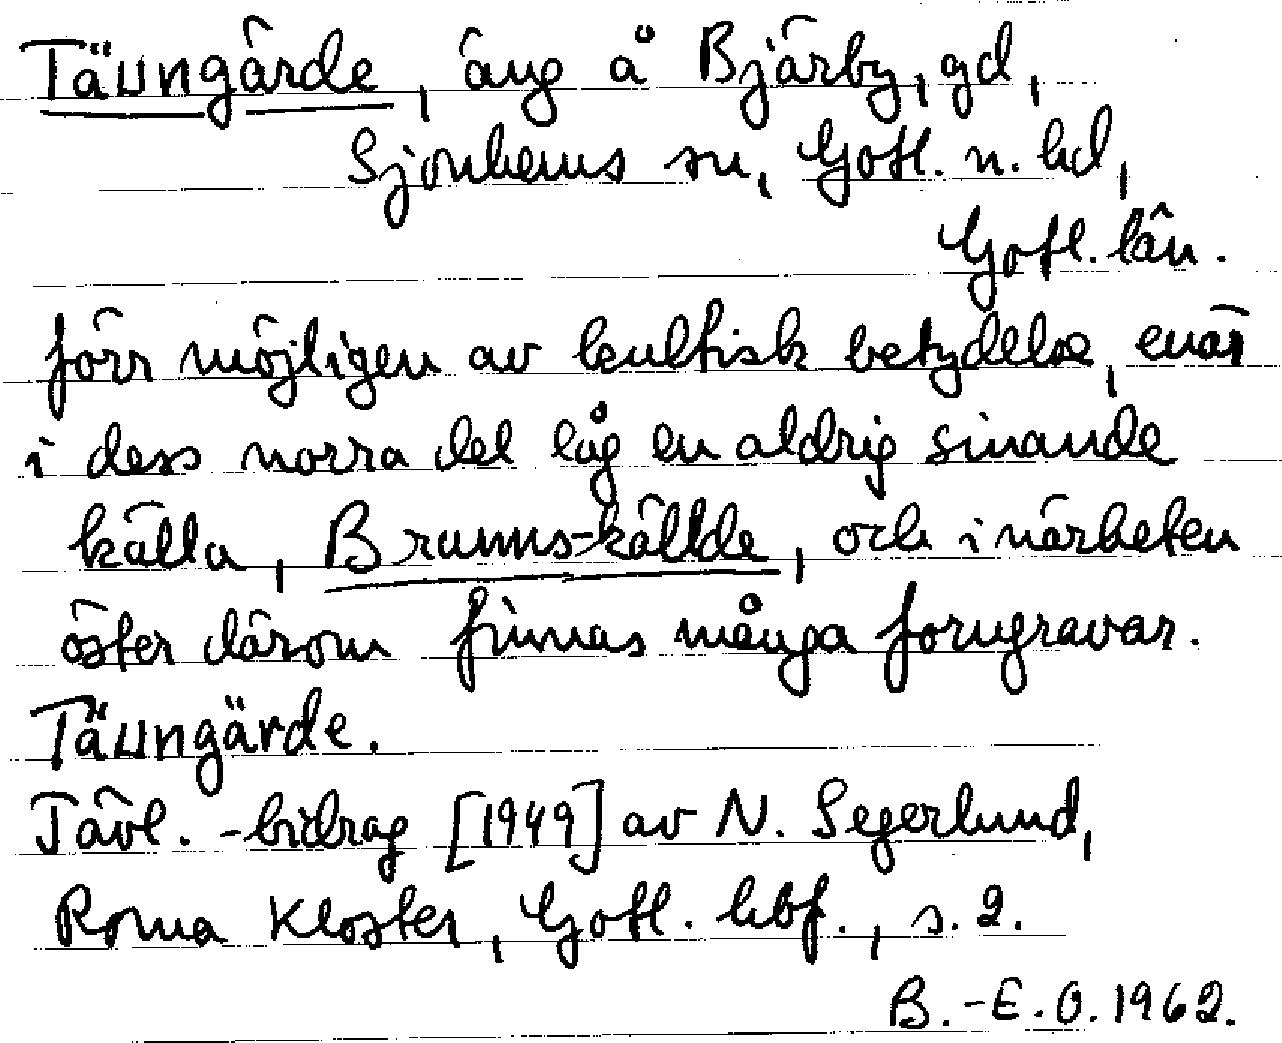 Täungärde, äng å Bjärby, gd,
Sjonhems sn, Gotl. n. hd,
Gotl. län.
förr möjligen av kultisk betydelse, enär
i dess norra del låg en aldrig sinande
källa, Brunns-källde, och i närheten
öster därom finnas många forngravar.
Täungärde.
Tävl.-bidrag [1949] av N. Segerlund,
Roma Kloster, Gotl. hbf., s. 2.
B.-E.O. 1962.